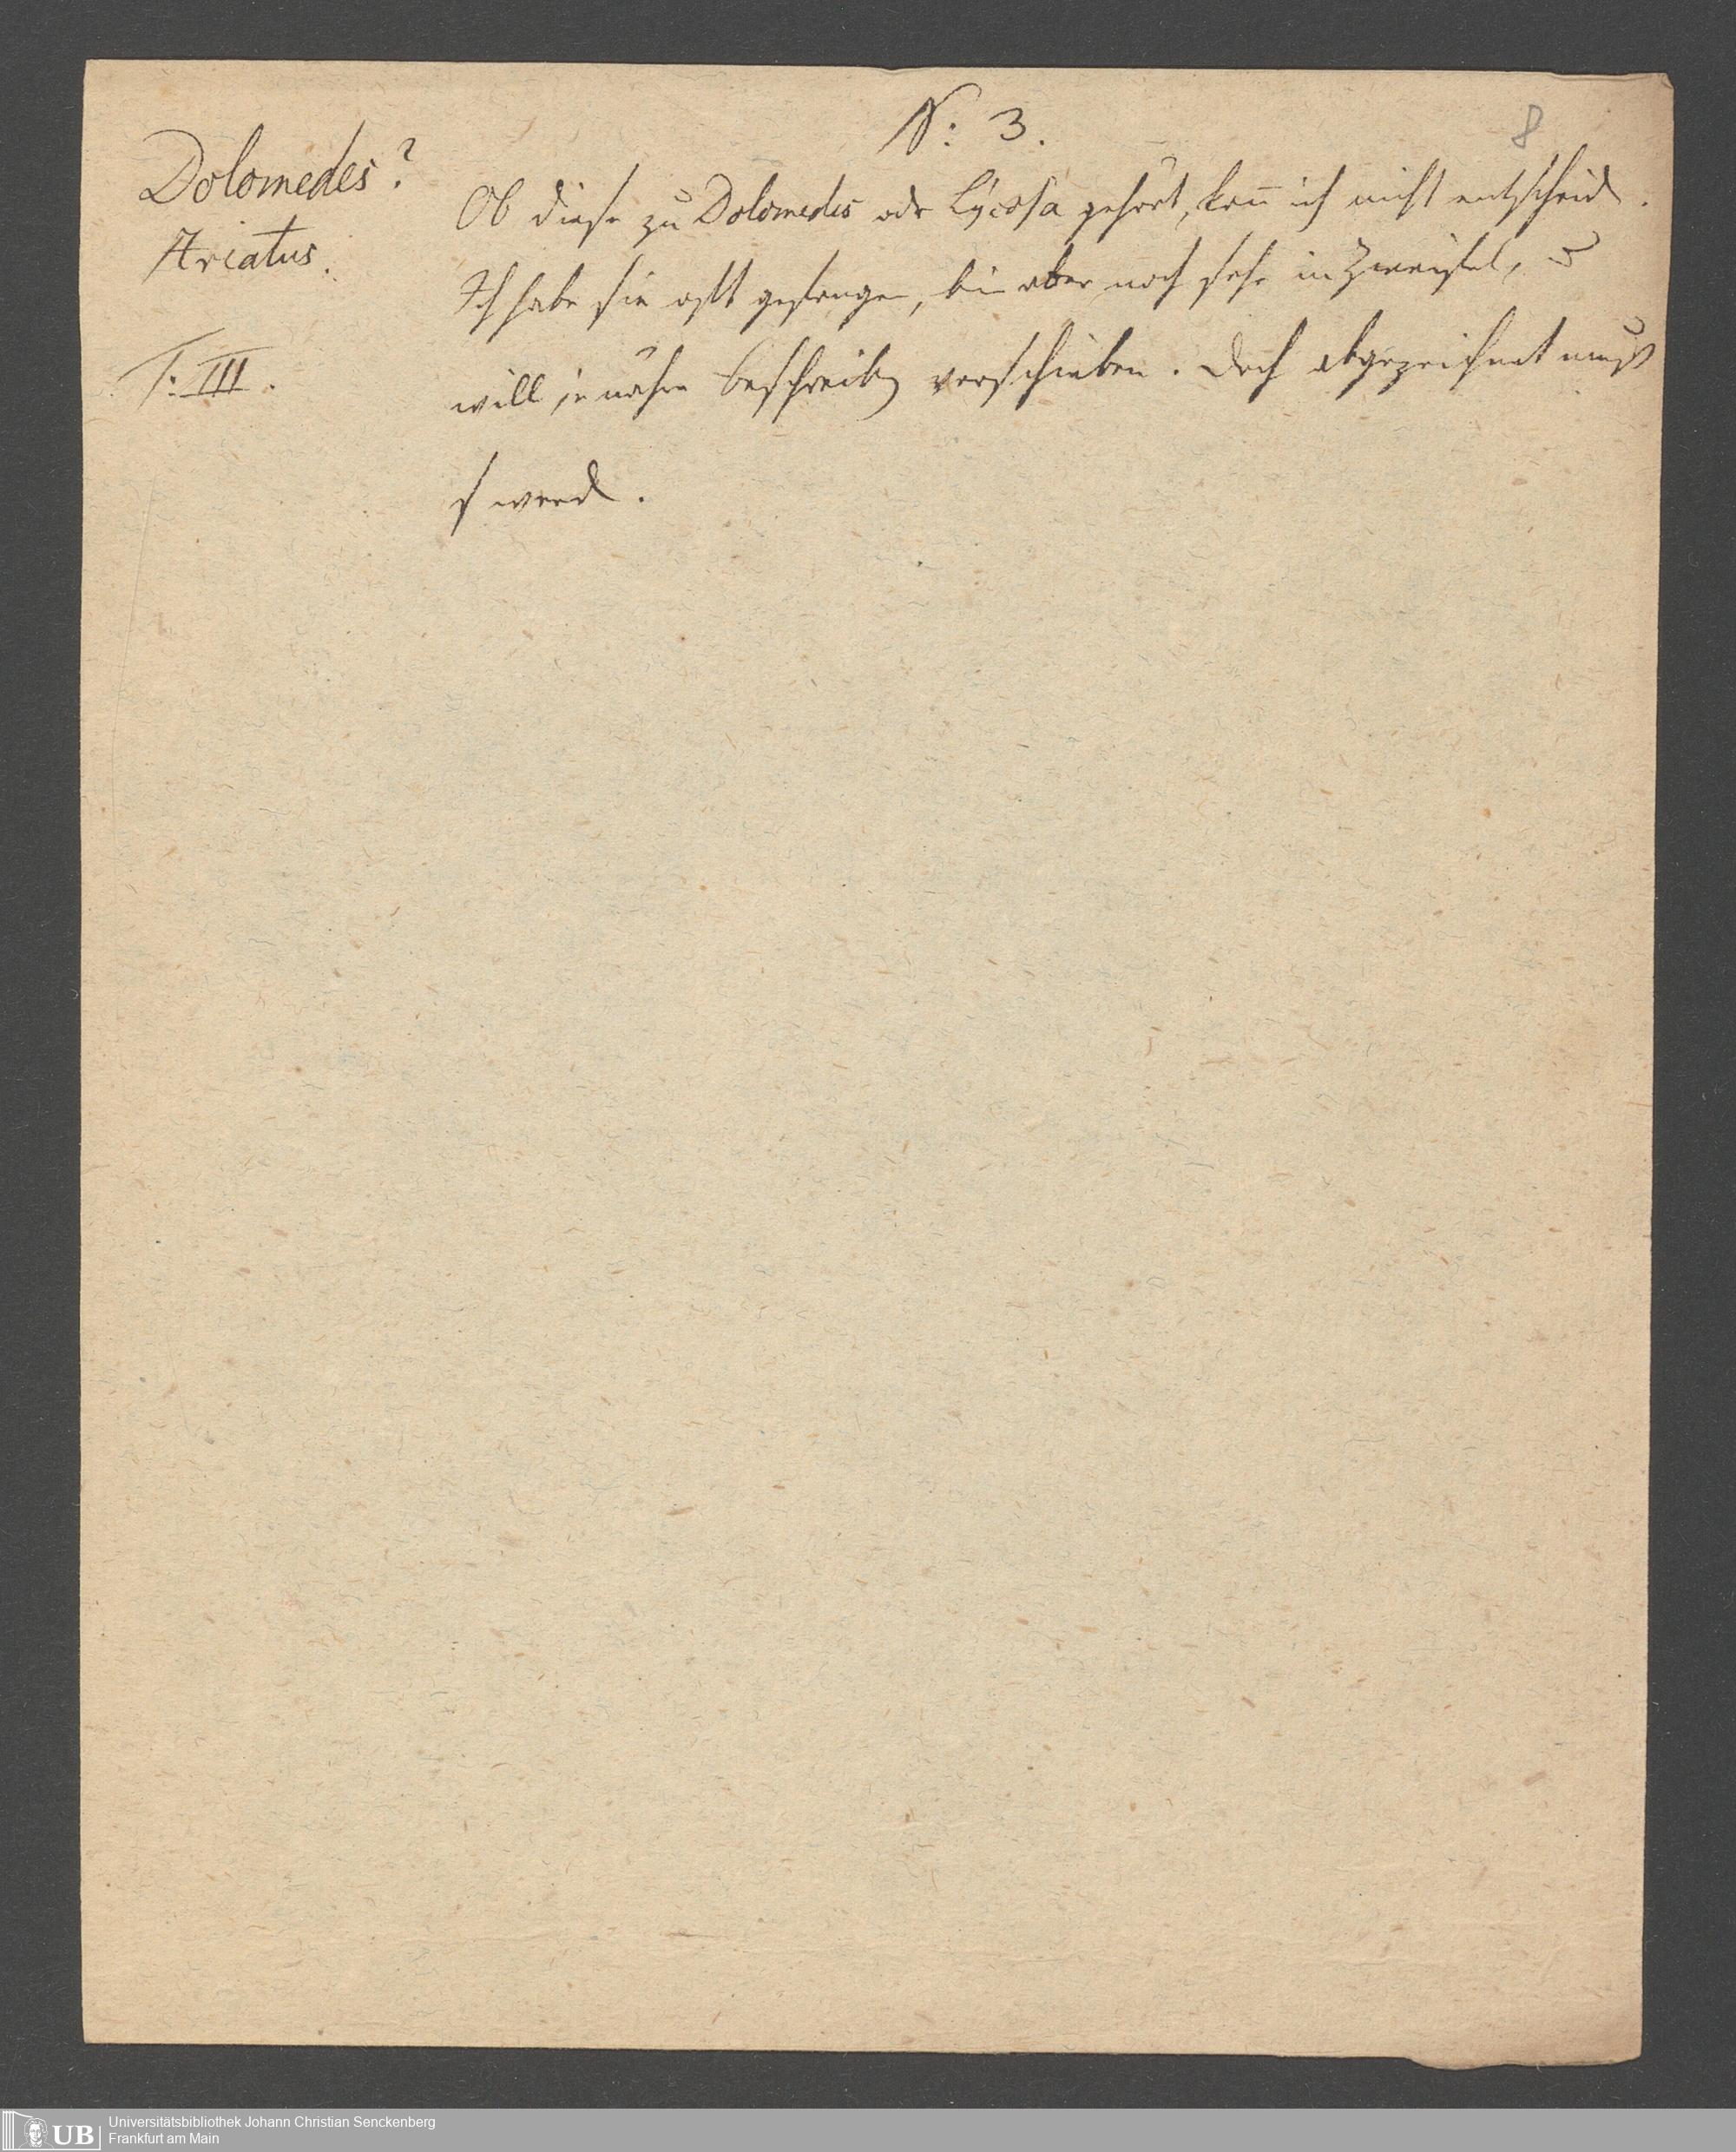 N: 3.
8
Dolomedes?
Ariatus.
T: III.
Ob diese zu Dolomedes oder Lycosa gehört, kan̅ ich nicht entscheid.
Ich habe sie oft gefangen, bin aber noch sehr in Zweifel, u
will je nähre Beschreibg verschieben. Doch abgezeichnet muß
s werd.
UB
Universitätsbibliothek Johann Christian Senckenberg
Frankfurt am Main